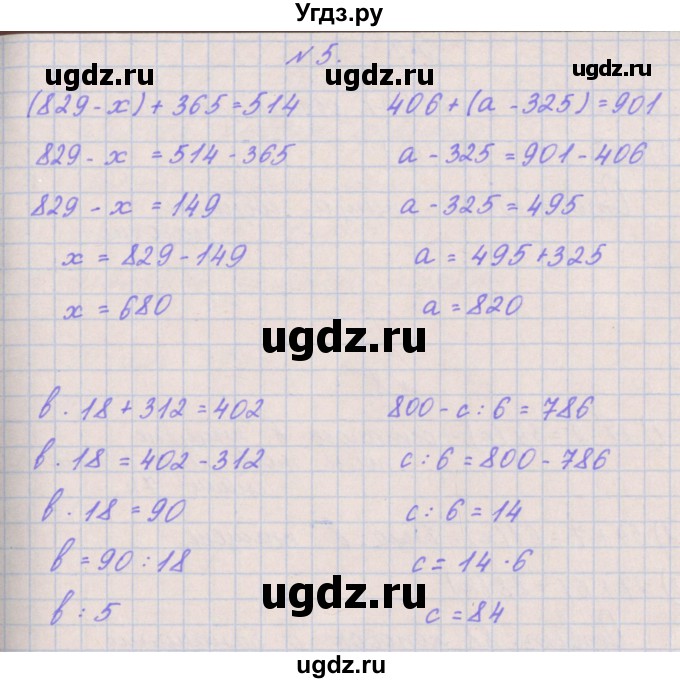 Угдз.ру
N 5.
(829 - x) + 365 = 514
829 - x = 514 - 365
829 - x = 149
x = 829 - 149
x = 680
406 + (a - 325) = 901
a - 325 = 901 - 406
a - 325 = 495
a = 495 + 325
a = 820
в · 18 + 312 = 402
в · 18 = 402 - 312
в · 18 = 90
в = 90 : 18
в : 5
800 - c : 6 = 786
c : 6 = 800 - 786
c : 6 = 14
c = 14 · 6
c = 84
ugdz.ru
ugdz.ru
ugdz.ru
ugdz.ru
ugdz.ru
ugdz.ru